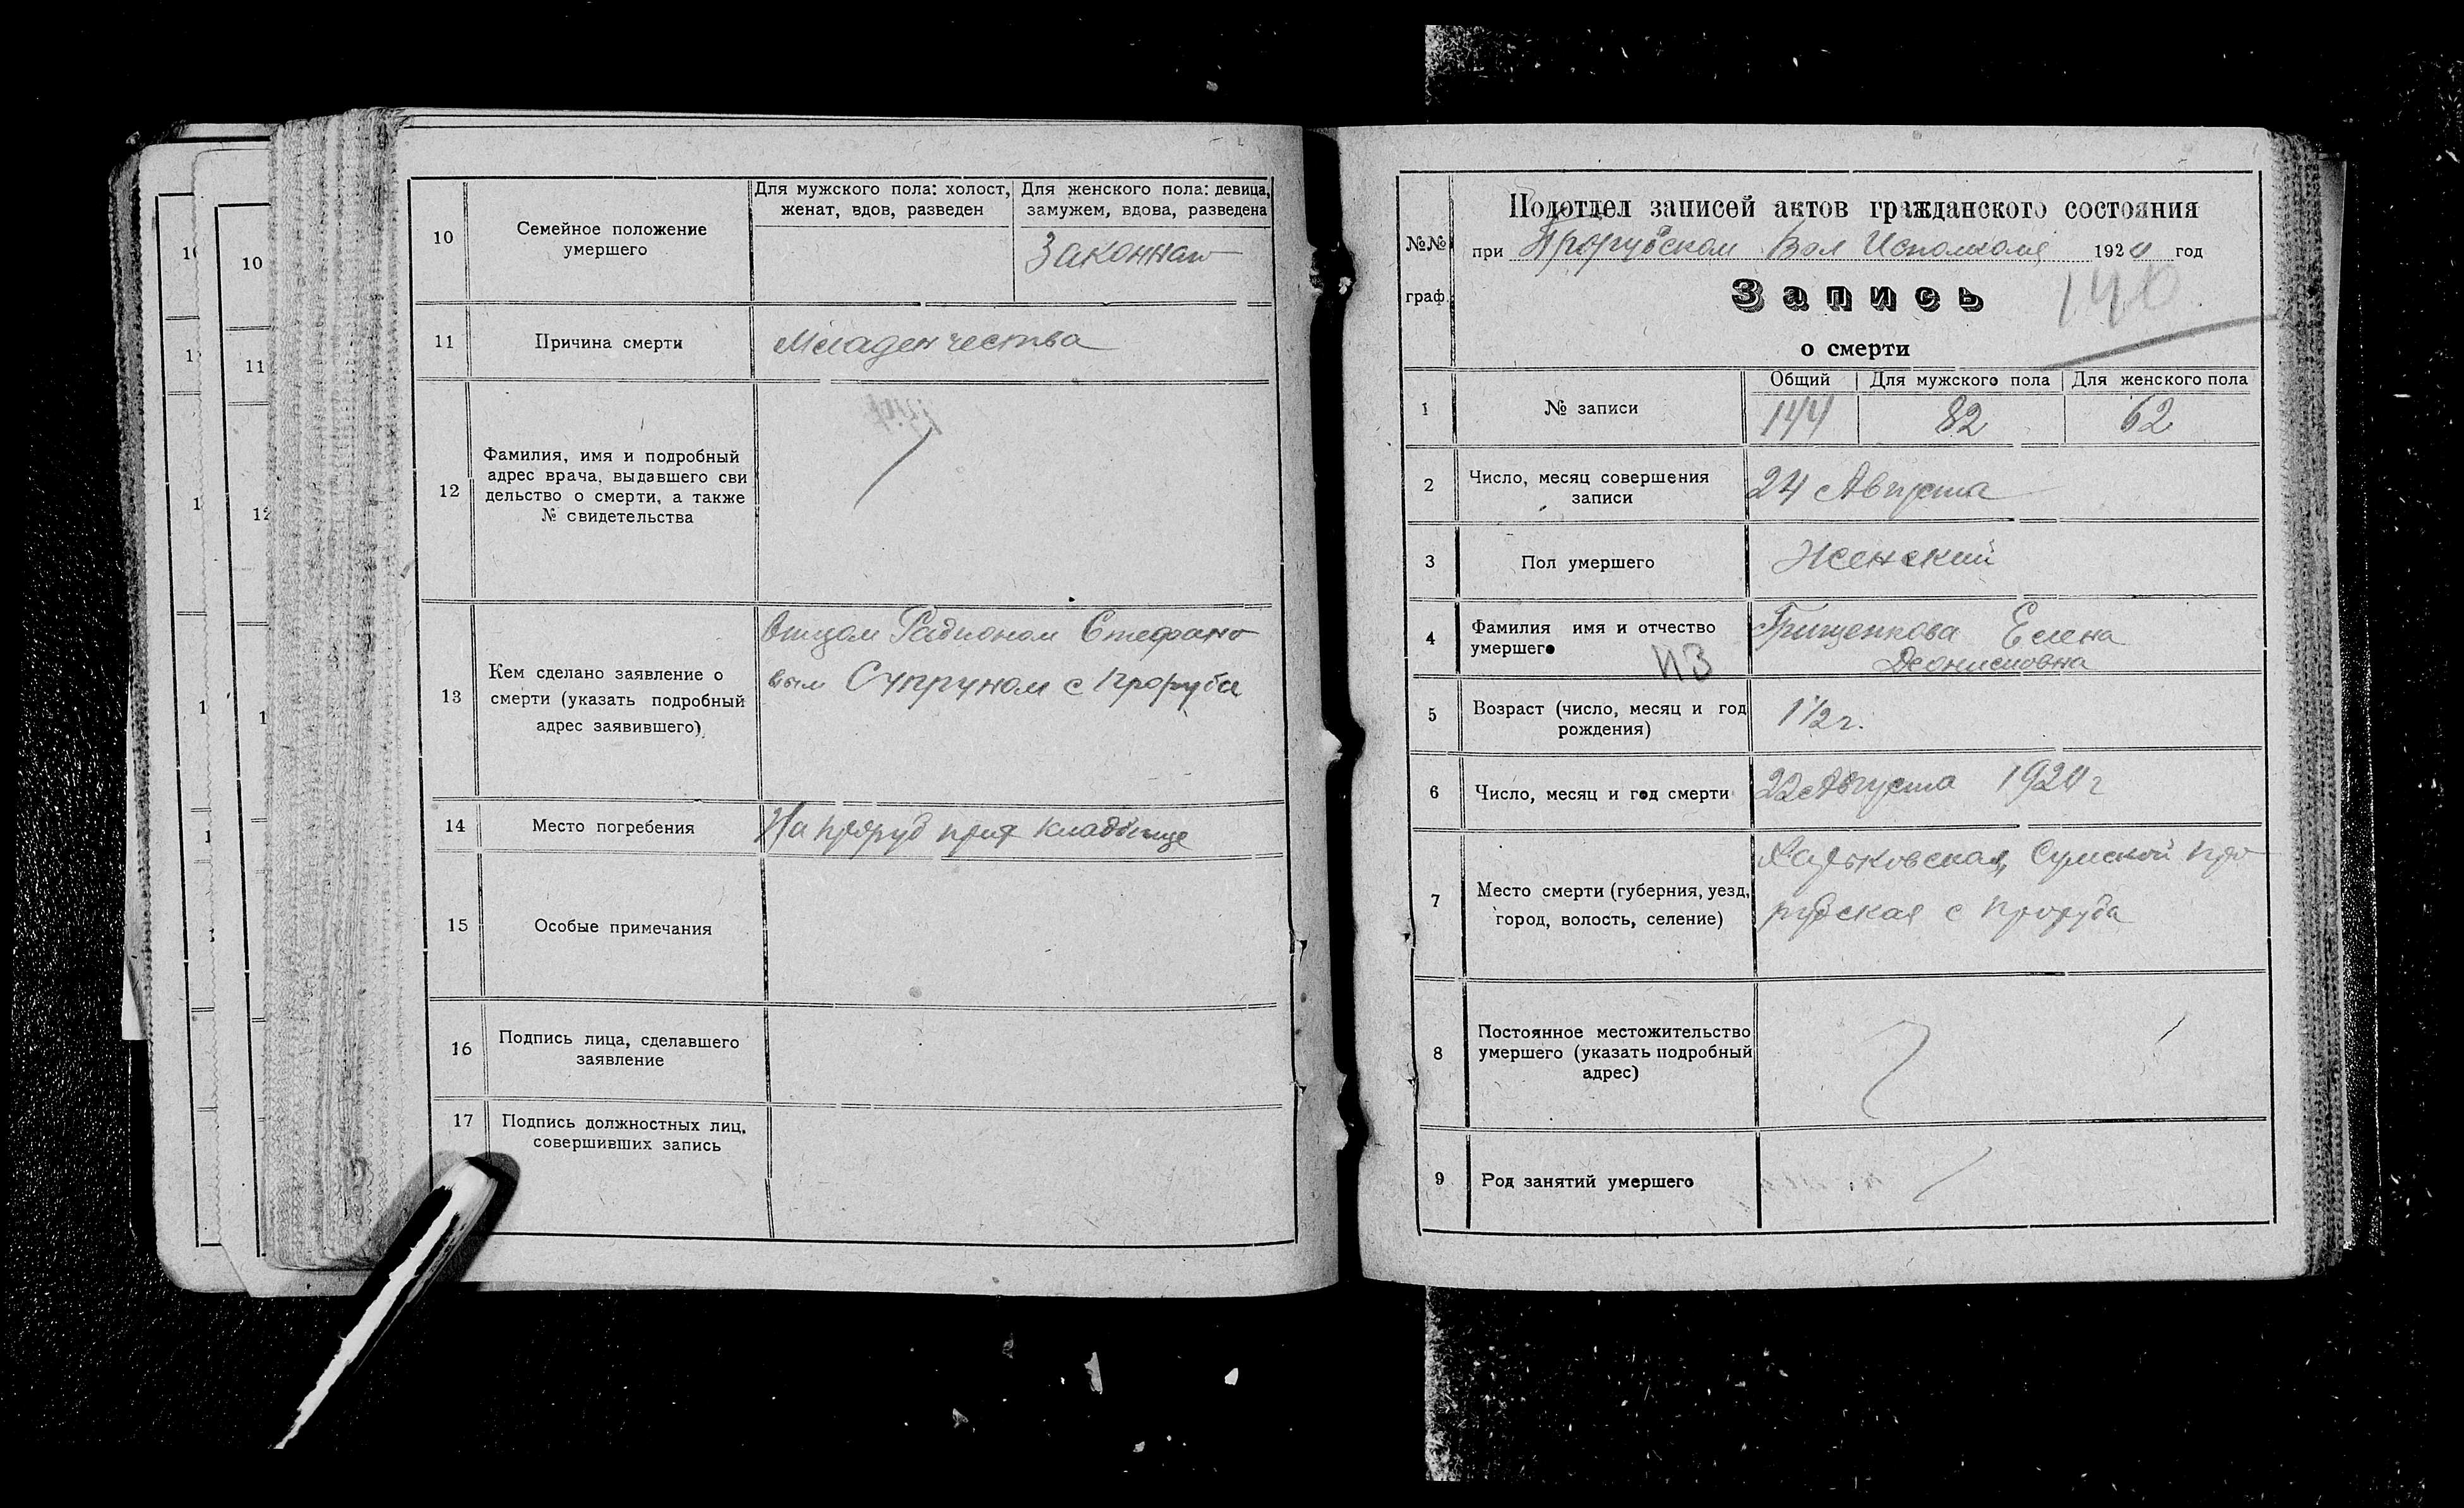 10
11
12
1
10
11
12
1
10
Семейное положение
умершего
Для мужского пола: холост,
женат, вдов, разведен
Для женского пола: девица,
замужем, вдова, разведена
Законная
11
Причина смерти
Младенчества
12
Фамилия, имя и подробный
адрес врача, выдавшего сви
дельство о смерти, а также
№ свидетельства
13
Кем сделано заявление о
смерти (указать подробный
адрес заявившего)
Отцом Радионом Стефано
вым Супруном с Проруба
14
Место погребения
На Проруб прих кладбище
15
Особые примечания
16
Подпись лица, сделавшего
заявление
17
Подпись должностных лиц,
совершивших запись
№№
граф.
Подотдел записей актов гражданского состояния
при Прорубском Вол Исполкоме 1920 год
Запись
146
о смерти
1
№ записи
Общий
Для мужского пола
Для женского пола
144
82
62
2
Число, месяц совершения
записи
24 Августа
3
Пол умершего
Женский
4
Фамилия имя и отчество
умершего
Грищенкова Елена
Деонисиовна
5
Возраст (число, месяц и год
рождения)
1 1/2 г.
6
Число, месяц и год смерти
22 Августа 1920 г
7
Место смерти (губерния, уезд,
город, волость, селение)
Харьковская, Сумской Про
рубская с Проруба
8
Постоянное местожительство
умершего (указать подробный
адрес)
9
Род занятий умершего